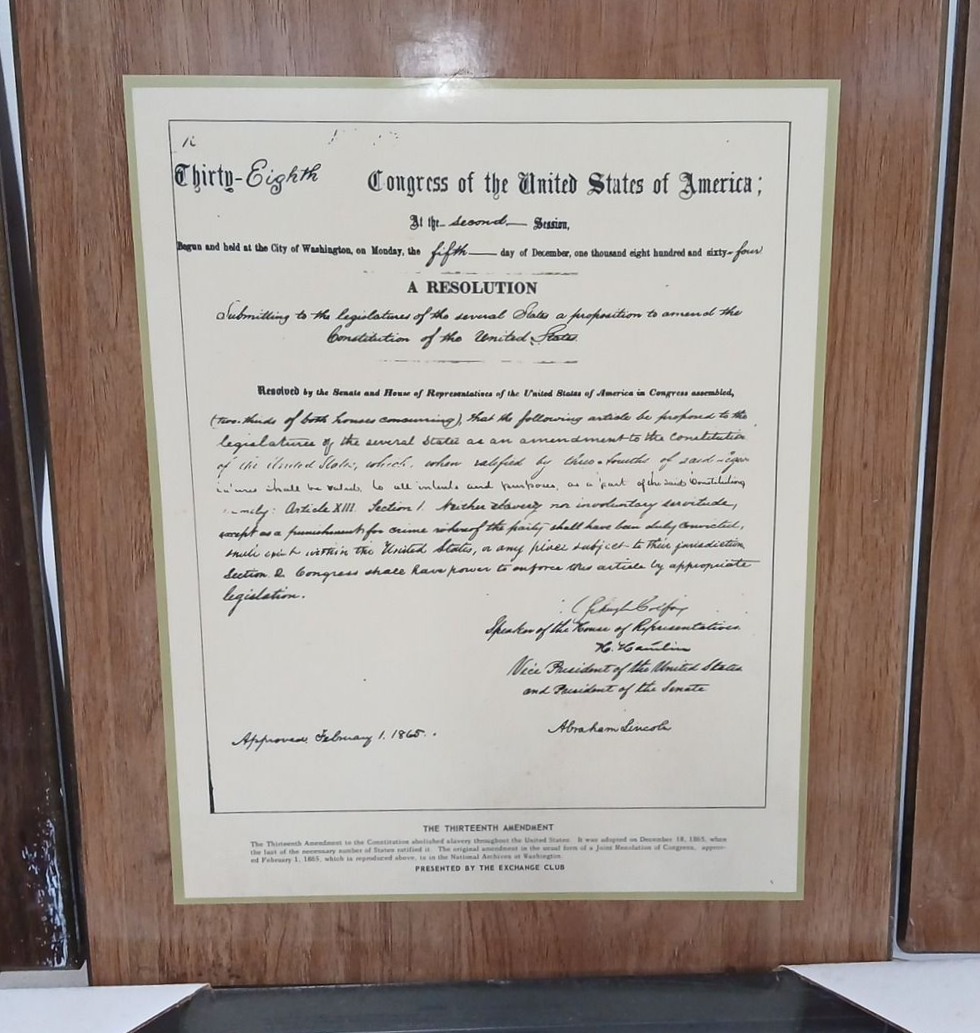 Thirty-Eighth Congress of the United States of America;
At the second Session,
Begun and held at the City of Washington, on Monday, the fifth day of December, one thousand eight hundred and sixty-four
A RESOLUTION
Submitting to the legislatures of the several States a proposition to amend the
Constitution of the United States.
Resolved by the Senate and House of Representatives of the United States of America in Congress assembled,
(two-thirds of both houses concurring), that the following article be proposed to the
legislatures of the several States as an amendment to the Constitution
of the United States, which, when ratified by three-fourths of said
shall be valid, to all intents and purposes, as a part of the said Constitution
namely: Article XIII. Section 1. Neither slavery nor involuntary servitude,
except as a punishment for crime whereof the party shall have been duly convicted,
shall exist within the United States, or any place subject to their jurisdiction.
Section 2. Congress shall have power to enforce this article by appropriate
legislation.
Schuyler Colfax
Speaker of the House of Representatives.
H. Hamlin
Vice President of the United States
and President of the Senate
Approved, February 1. 1865. Abraham Lincoln
THE THIRTEENTH AMENDMENT
The Thirteenth Amendment to the Constitution abolished slavery throughout the United States. It was adopted on December 18, 1865, when
the last of the necessary number of States ratified it. The original amendment in the usual form of a Joint Resolution of Congress, approv-
ed February 1, 1865, which is reproduced above, is in the National Archives at Washington.
PRESENTED BY THE EXCHANGE CLUB